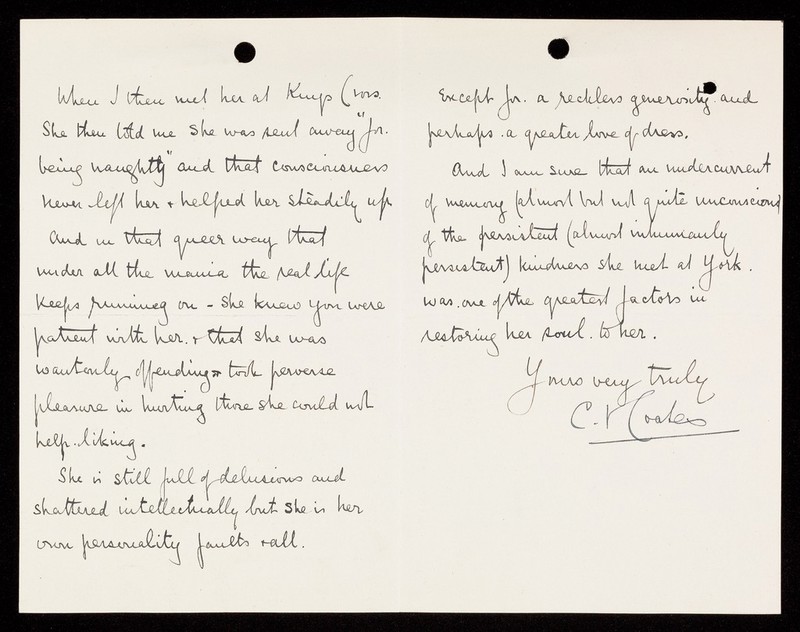 When I then met her at Kings Cross.
She then told me She was sent away "for.
being naughty" and that consciousness
never left her + helped her steadily up
And in that queer way that
under all the mania the real life
keeps running on - She knew you were
patient with her. + that she was
wantonly offending + took perverse
pleasure in hurting those she could not
help liking.
She is still full of delusions and
shattered intellectually but she is her
own personality faults + all.
Except for. a reckless generosity and
perhaps. a greater love of dress.
And I am sure that an undercurrent
of memory (almost but not quite unconscious)
of the persistent (almost inhumanly
persistent) kindness she met at York.
was. one of the greatest factors in
restoring her soul. to her.
Yours very truly
C. V Coates